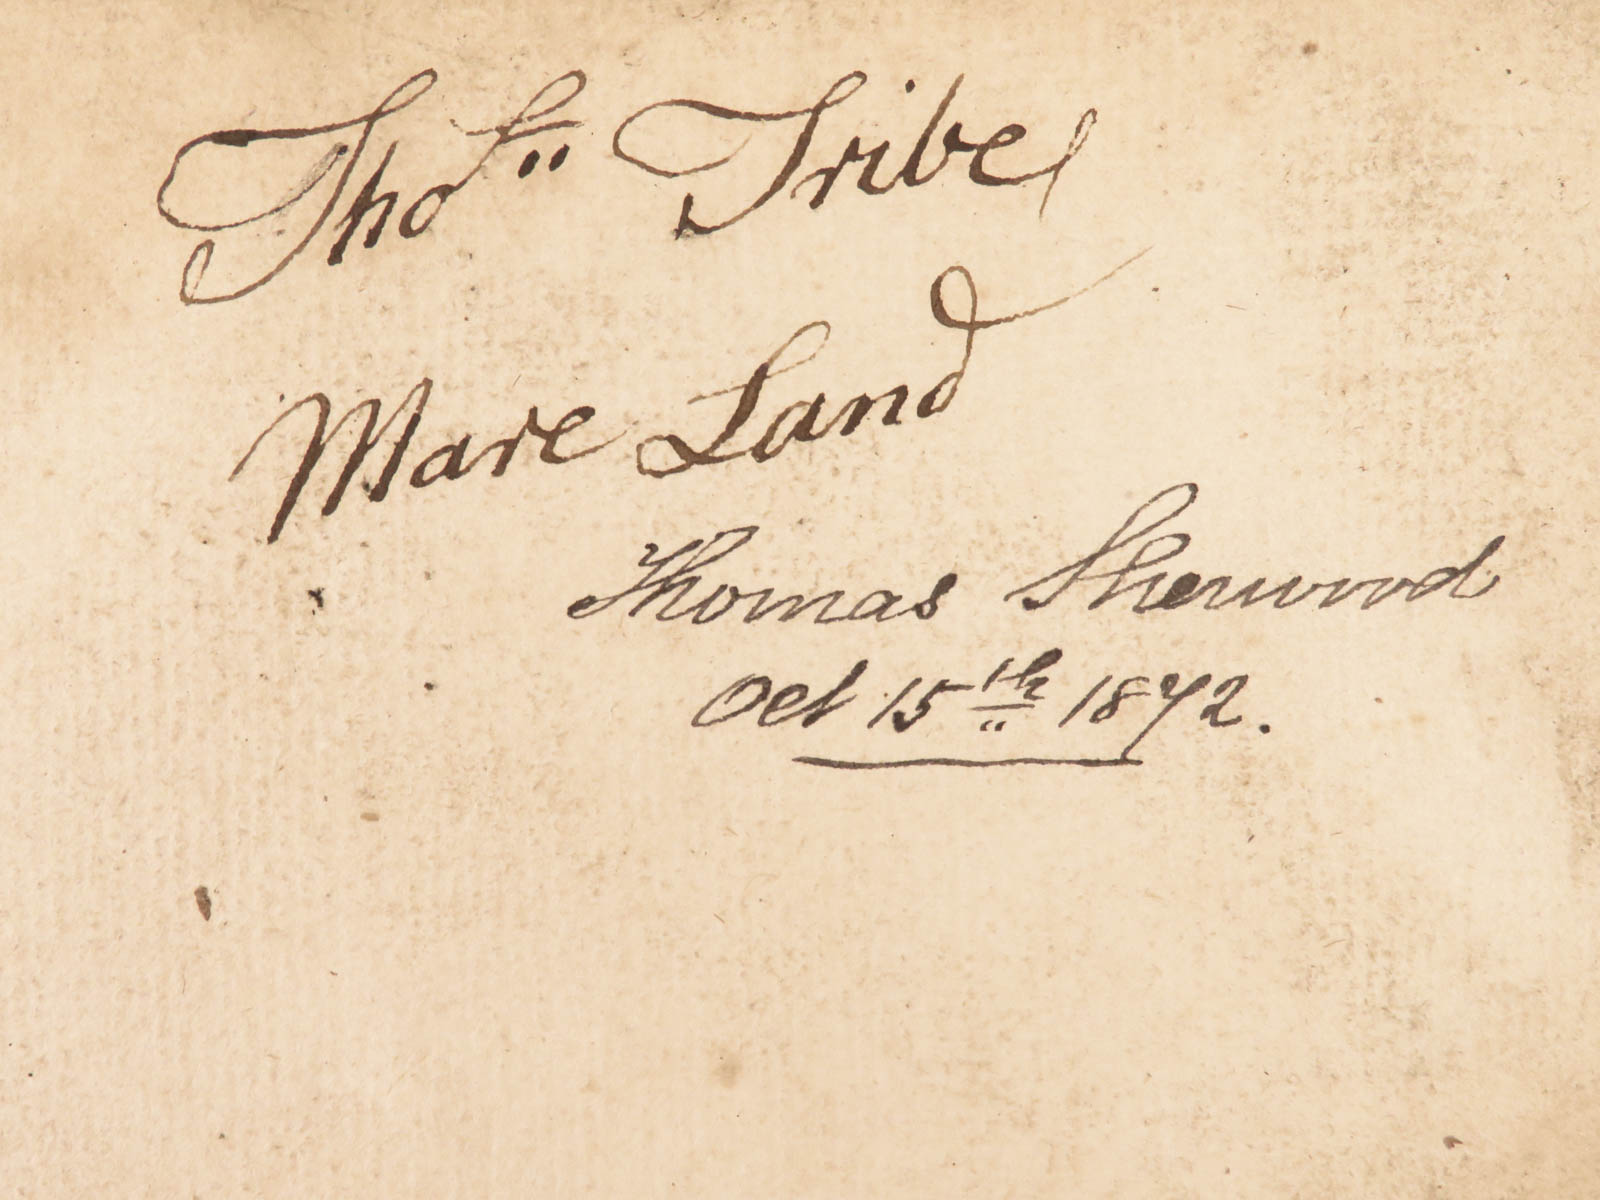 Thos Tribe
Mare Land
Thomas Sherwood
Oct 15th 1872.